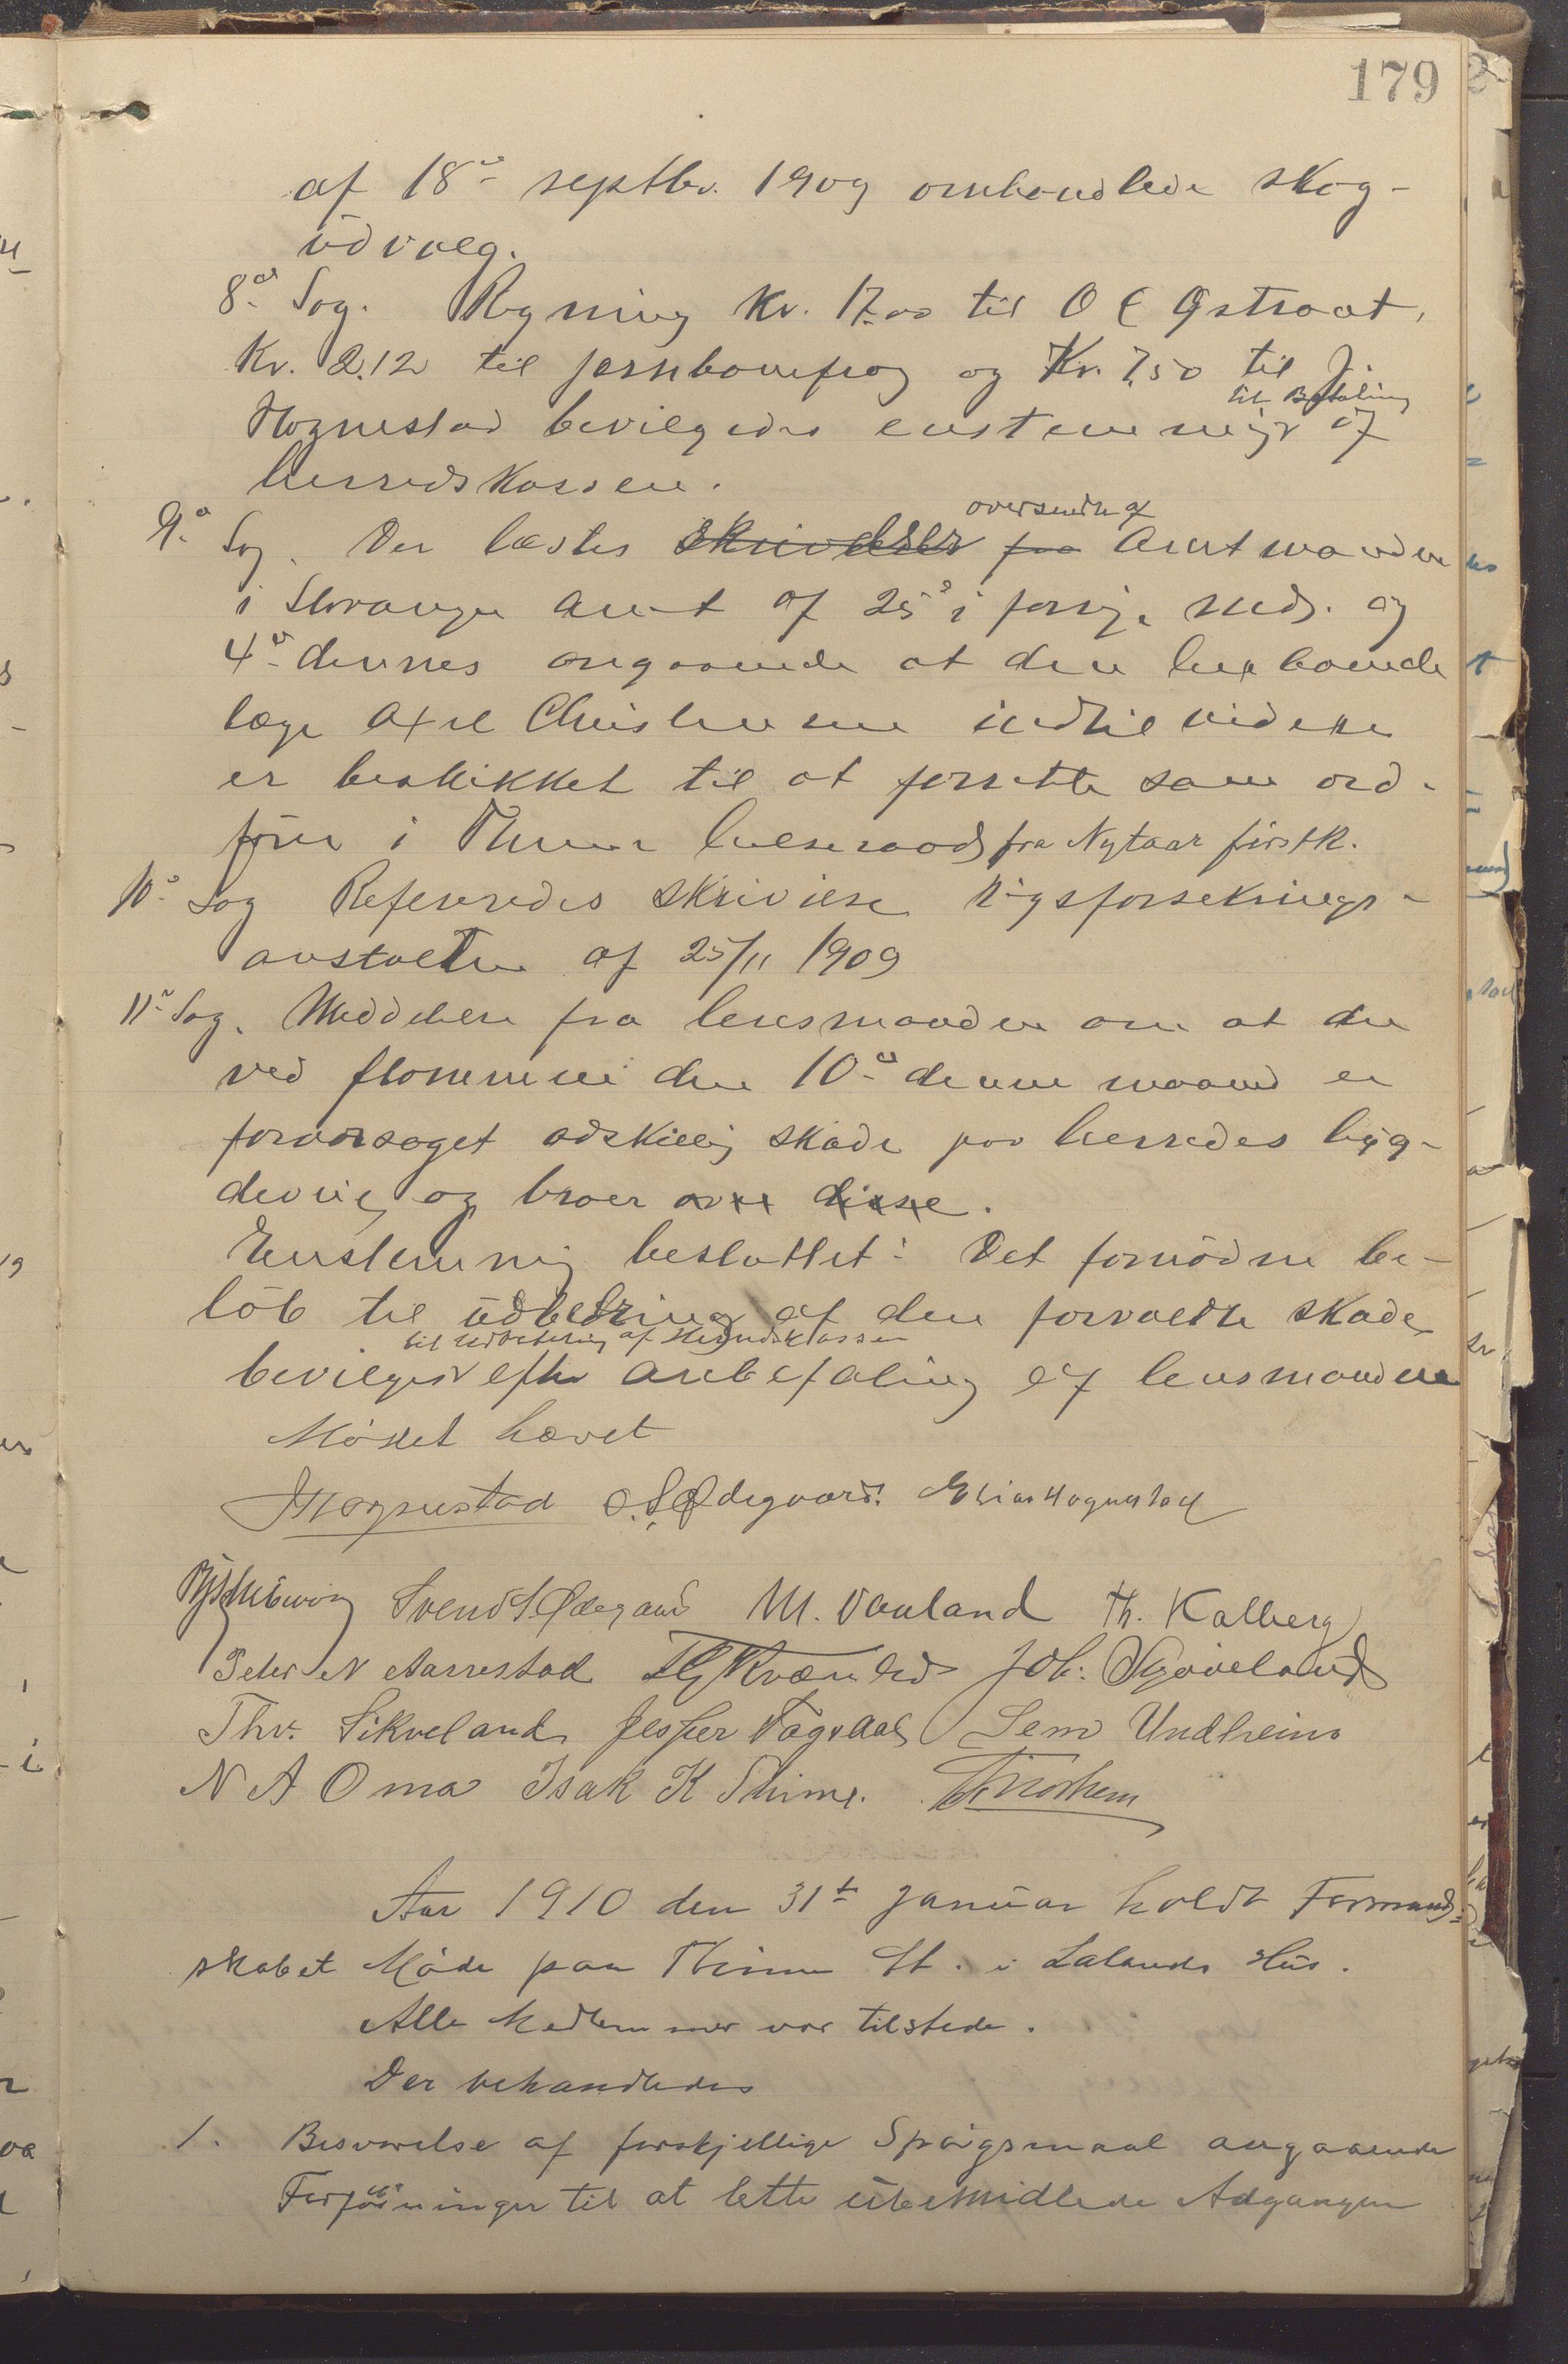 179
af 18de septbr. 1909 omhandlede skog-
udvalg.
8de Sag. Regning Kr. 17.00 til O E Gstraat,
Kr. 2.12 til Jernbanefrag og Kr. 7,50 til J.
til Betaling
Hognestad bevilgedes enstemmig af
herredskassen.
oversendte af
9de Sag. Der læstes skrivelser fra Amtmanden
i Stavanger Amt af 25de i forrige Mds. og
4de dennes angaaende at den herboende
læge Axel Christensen indtil videre
er beskikket til at forsette som ord-
förer i Thime helseraad fra Nytaar förstk.
10de Sag Refereredes skrivelse Rigsforsekrings-
anstalten af 25/11 1909
11te Sag. Meddelelse fra lensmanden om at der
ved flommen den 10de denne maaned er
foraarsaget adskillig skade paa herredes byg-
deveie og broer disse.
Enstemmig besluttet: Det fornödne be-
löb til udbedring af den forvoldte skade
til Udbetaling af Herredskassen
bevilges efter anbefaling af lensmanden
Mödet hævet
J Hognestad O. S. Ødegaard. Elias Hognestad
Svend S Ødegaard M. Vauland Th. Kalberg
Peder N Aarrestad Kværnland Joh. Skjæveland
Thv. Sikveland Jesper Fagrdal Sem Undheim
N A Oma Isak K Thime.
Aar 1910 den 31te Januar holdt Formands-
skabet Möde paa Thime St. i Lalands Hus.
Alle Medlemmer var tilstede.
Der behandledes
1. Besvarelse af forskjellige Spörgsmaal angaaende
Forföininger til at lette ubemidlede Adgangen